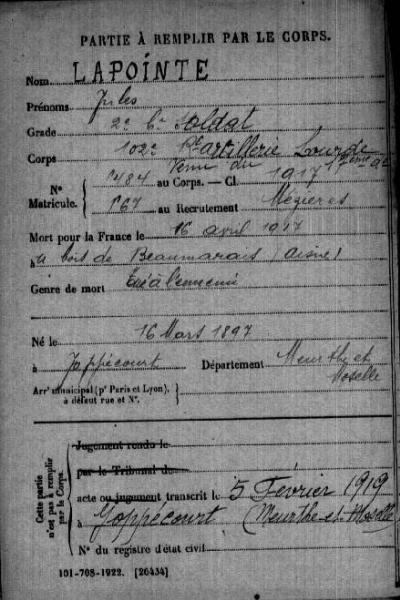 PARTIE À REMPLIR PAR LE CORPS.
Nom LAPOINTE
Prénoms Jules
Grade 2e Cr Soldat
Corps 102e Rt artillerie Lourde
Venu du 17ème
N° Matricule. 1484 au Corps. — Cl. 1917
167 au Recrutement Mézières
Mort pour la France le 16 avril 1917
au bois de Beaumarais (Aisne)
Genre de mort Tué à l'ennemi
Né le 16 Mars 1897
à Joppécourt Département Meurthe et Moselle
Arrt municipal (pr Paris et Lyon), à défaut rue et N°.
Cette partie n'est pas à remplir par le Corps.
Jugement rendu le
par le Tribunal de
acte ou jugement transcrit le 5 Février 1919
à Joppécourt (Meurthe-et-Moselle
N° du registre d'état civil
101-708-1922. [26434]